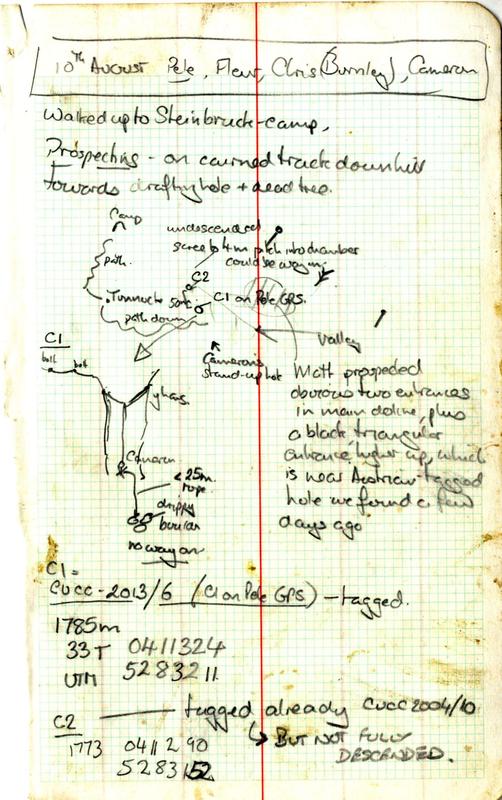 10th August Pole, Fleur, Chris (Burnley), Cameron
Walked up to Steinbruck-camp.
Prospecting - on cairned track downhill
towards drafty hole + dead tree.
Camp
path.
undescended
scree to 4m pitch into chamber
could be way in.
C2
Tunnocks 50m
C1 on Pole GPS.
path down
valley
Cameron's
stand-up hole
C1
bolt bolt
y hang
Cameron
<25m
rope
drippy
boulder
no way on
Matt prospected
obvious two entrances
in main doline, plus
a black triangular
entrance higher up, which
is near Austrian tagged
hole we found a few
days ago
C1 =
CUCC-2013/6 (C1 on Pole GPS) - tagged.
1785m
33T 0411324
UTM 5283211
C2 tagged already CUCC 2004/10
↳ BUT NOT FULLY
DESCENDED.
1773 0411290
5283152